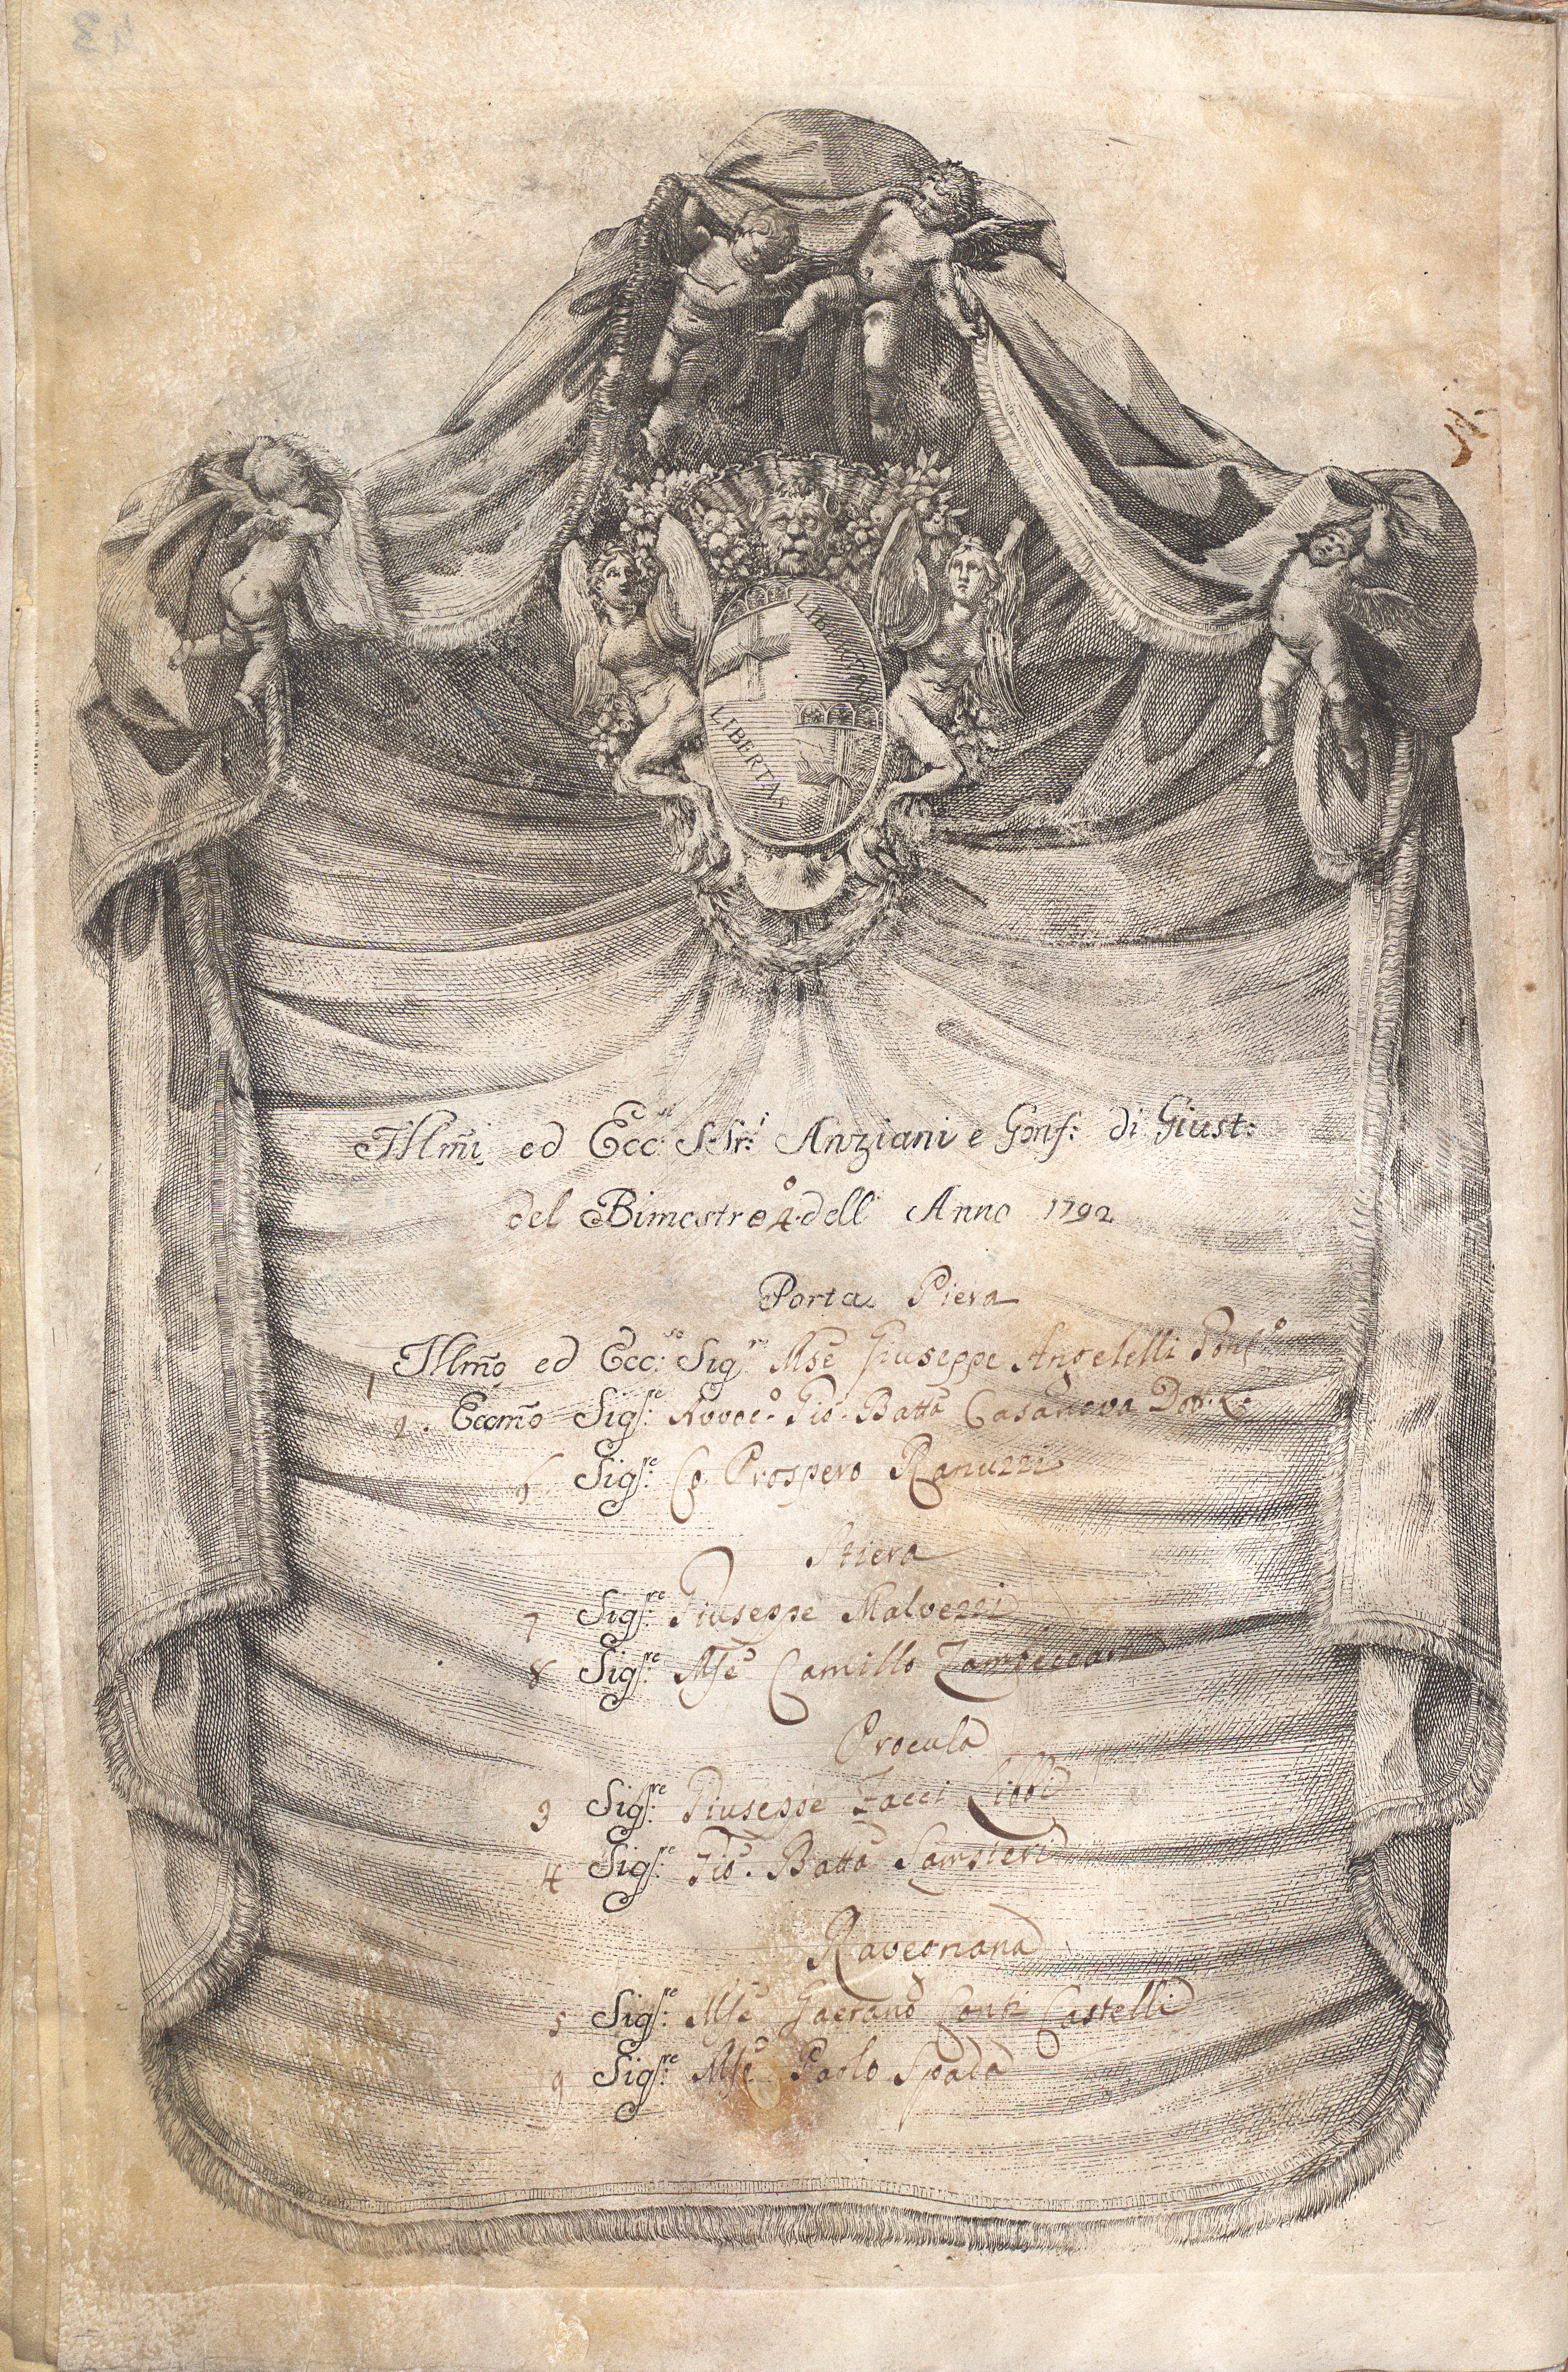 LIBERTAS
LIBERTAS
Illm̃i ed Ecc.si S.Sri. Anziani e Gonf: di Giust:
del Bimestre 4.o dell' Anno 1792
Porta Piera
1 Illm̃o ed Ecc:so Sig.re Mse Giuseppe Angelelli Gonf.o
2. Eccm̃o Sig.re Avvoc.o Gio. Batta Casanova Dot.
6 Sig.re Co. Prospero Ranuzzi
Stiera
7 Sig.re Giuseppe Malvezzi
8 Sig.re Mse Camillo Zambeccari
Procula
3 Sig.re Giuseppe Zacci Libbi
4 Sig.re Gio. Batta Sampieri
Ravegnana
5 Sig.re Mse Gaetano Conti Castelli
9 Sig.re Mse Paolo Spada